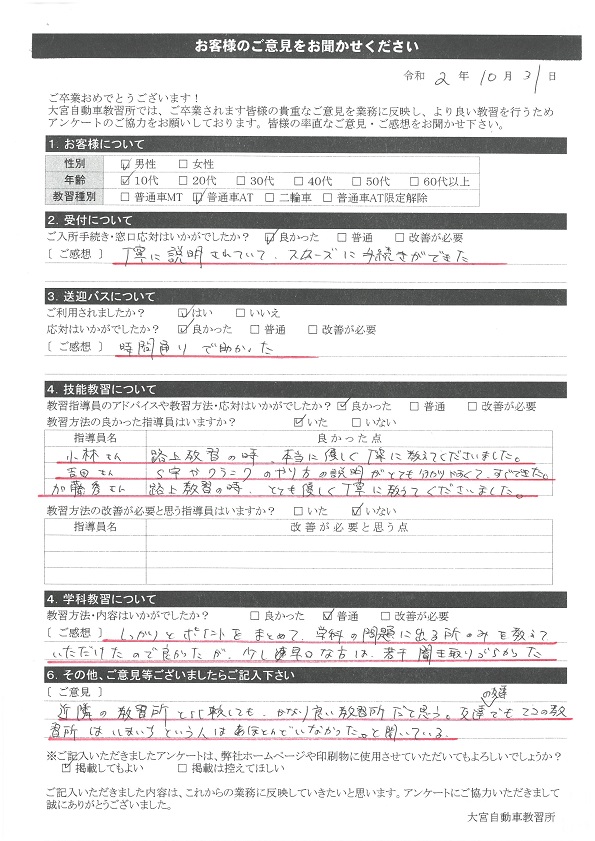 お客様のご意見をお聞かせください
令和 2 年 10 月 31 日
ご卒業おめでとうございます！
大宮自動車教習所では、ご卒業されます皆様の貴重なご意見を業務に反映し、より良い教習を行うため
アンケートのご協力をお願いしております。皆様の率直なご意見・ご感想をお聞かせ下さい。
1. お客様について
性別 ☑男性 □女性
年齢 ☑10代 □20代 □30代 □40代 □50代 □60代以上
教習種別 □普通車MT ☑普通車AT □二輪車 □普通車AT限定解除
2. 受付について
ご入所手続き・窓口応対はいかがでしたか？ ☑良かった □普通 □改善が必要
[ ご感想 ] 丁寧に説明されていて、スムーズに手続きができました
3. 送迎バスについて
ご利用されましたか？ ☑はい □いいえ
応対はいかがでしたか？ ☑良かった □普通 □改善が必要
[ ご感想 ] 時間通りで助かった
4. 技能教習について
教習指導員のアドバイスや教習方法・応対はいかがでしたか？ ☑良かった □普通 □改善が必要
教習方法の良かった指導員はいますか？ ☑いた □いない
指導員名 良かった点
小林さん 路上教習の時、本当に優しく丁寧に教えてくださいました。
吉田さん S字やクランクのやり方の説明がとても分かりやすくて、すぐできた。
加藤秀さん 路上教習の時、とても優しく丁寧に教えてくださいました。
教習方法の改善が必要と思う指導員はいますか？ □いた ☑いない
指導員名 改善が必要と思う点
4. 学科教習について
教習方法・内容はいかがでしたか？ □良かった ☑普通 □改善が必要
[ ご感想 ] しっかりとポイントをまとめて、学科の問題に出る所のみを教えて
いただけたので良かったが、少し早口な方は、若干聞き取りづらかった
6. その他、ご意見等ございましたらご記入下さい
[ ご意見 ]
近隣の教習所と比較しても、かなり良い教習所だと思う。友達の友達でもこの教
習所はいまいちという人はあほとんどいなかった。と聞いている。
※ご記入いただきましたアンケートは、弊社ホームページや印刷物に使用させていただいてもよろしいでしょうか？
☑掲載してもよい □掲載は控えてほしい
ご記入いただきました内容は、これからの業務に反映していきたいと思います。アンケートにご協力いただきまして
誠にありがとうございました。
大宮自動車教習所